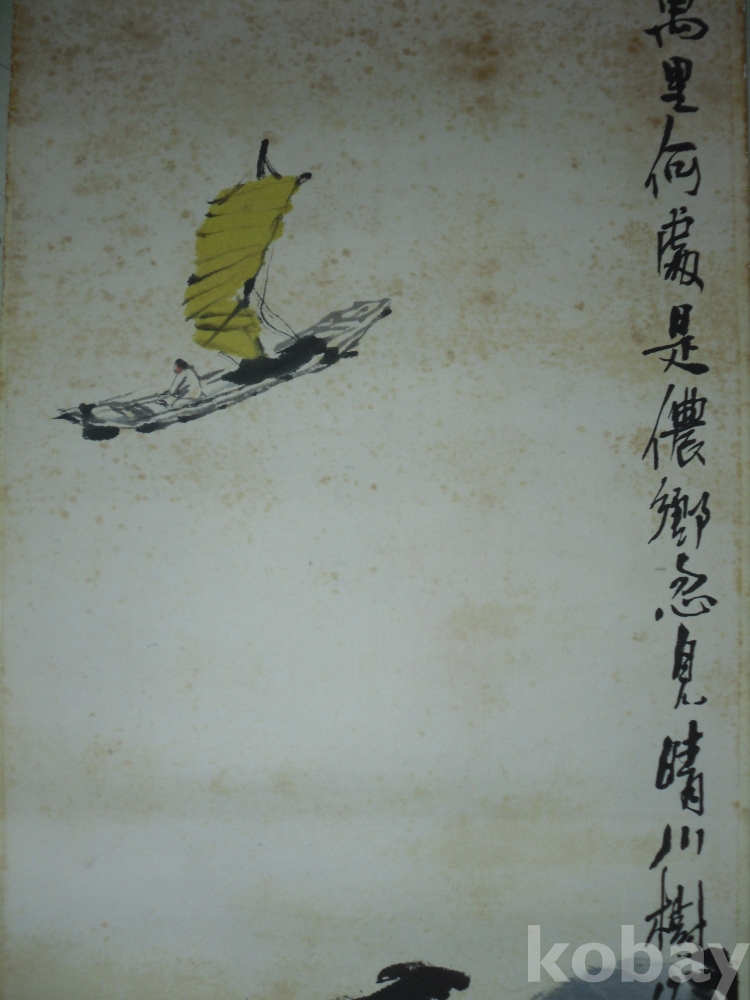 萬里何處是儂鄉忽見晴川樹
kobay